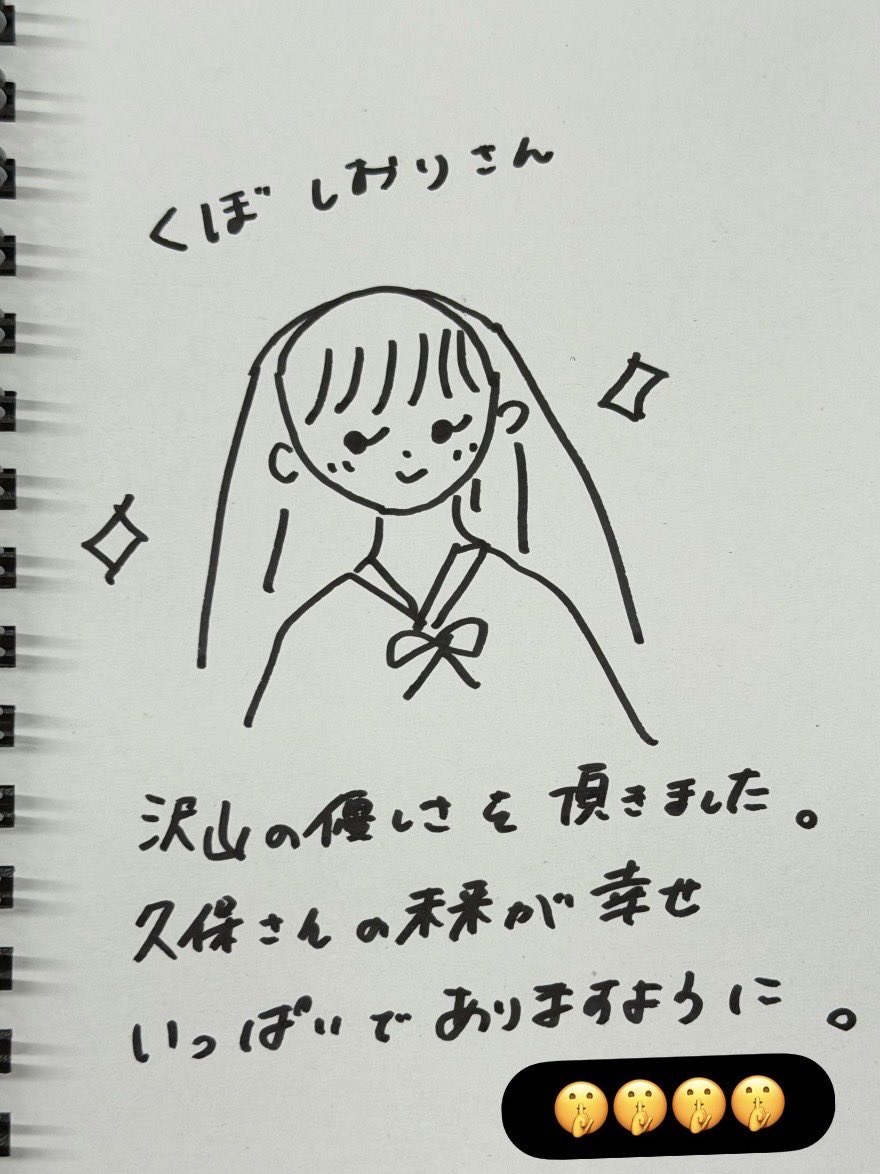 くぼ しおりさん
沢山の優しさを頂きました。
久保さんの未来が幸せ
いっぱいでありますように。